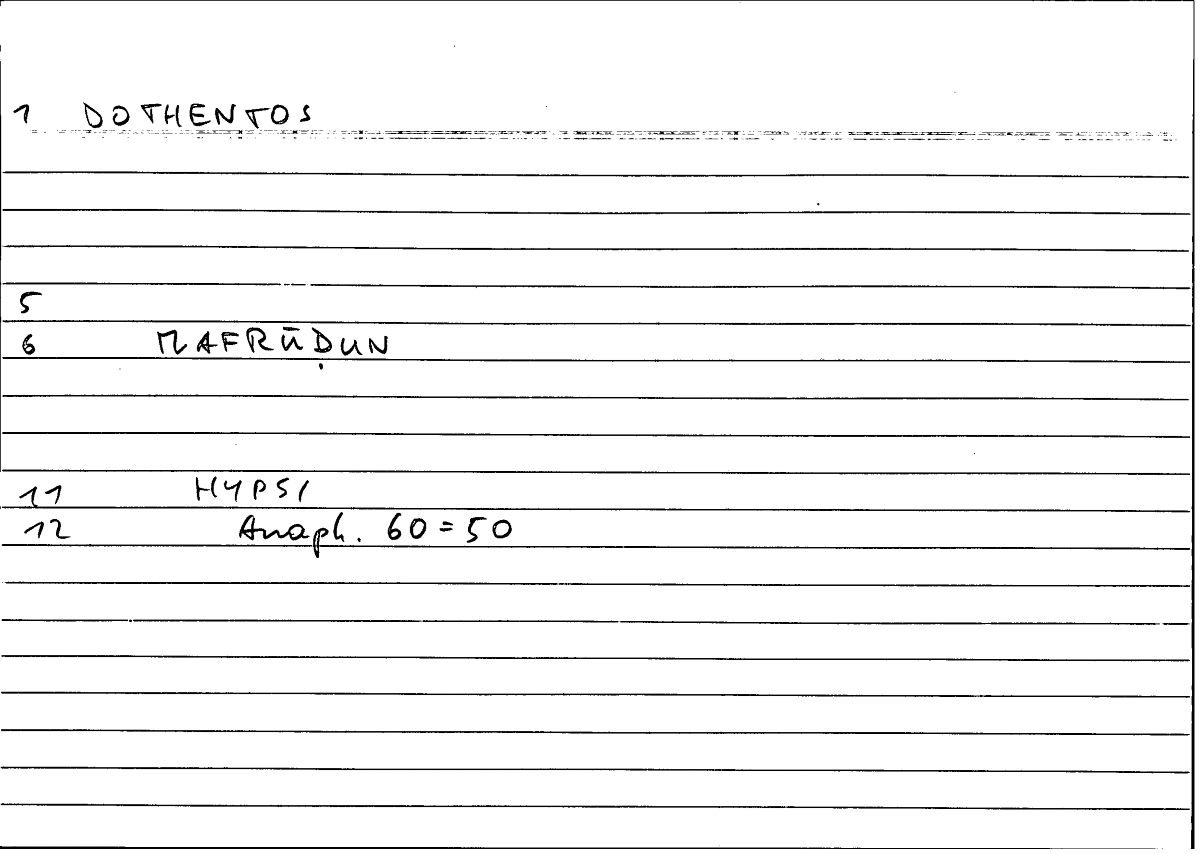 1 DOTHENTOS
5
6 MAFRŪḌUN
11 HYPSI
12 Anaph. 60=50